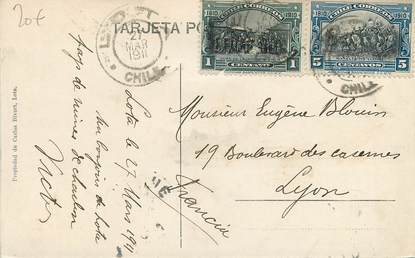 20€
TARJETA PO
LOTA
27
MAR
1911
CHILE
1810 CHILE CORREOS 1910
1 CENTAVO 1
1810 CHILE CORREOS 1910
5 CENTAVOS 5
Propiedad de Carlos Brandt, Lota.
Lota le 27 Mars 1911
Un bonjour de Lota
pays de mines de charbon
Victor
Monsieur Eugène Blouin
19 Boulevard des casernes
Lyon
Francia